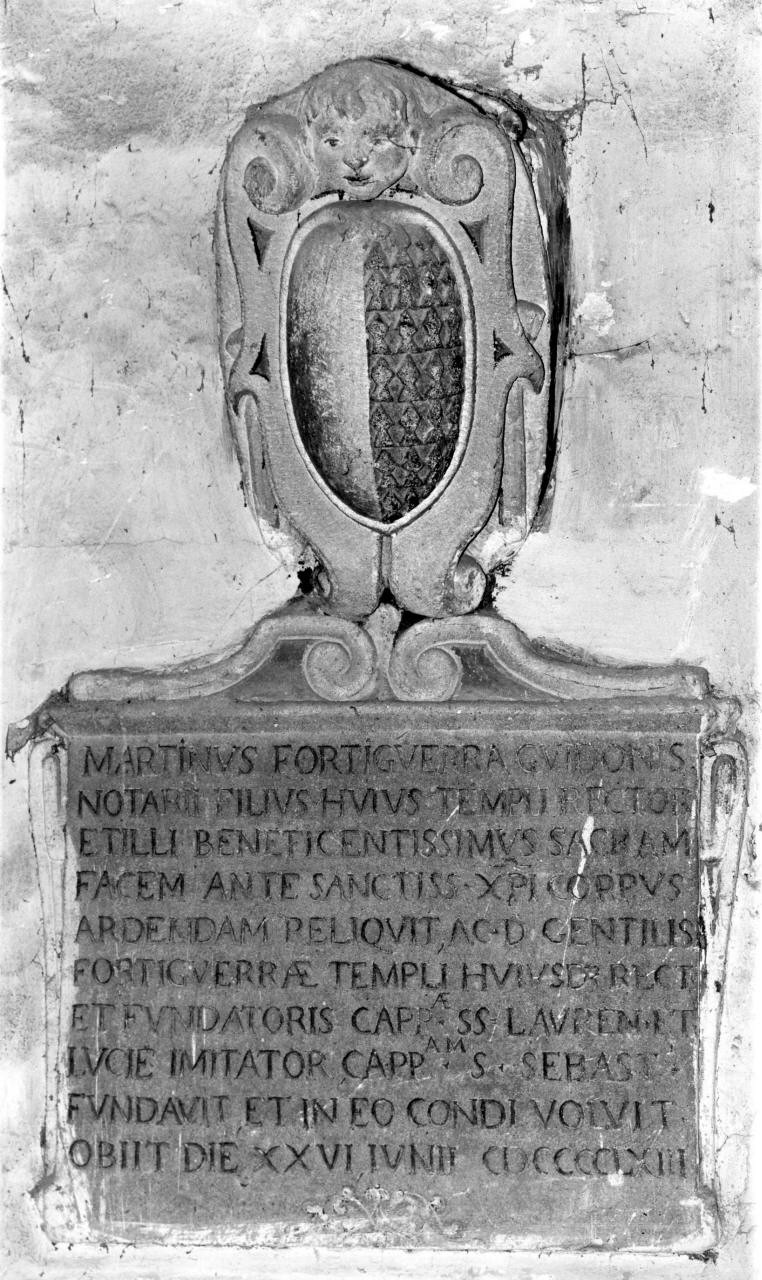 MARTINVS FORTIGVERRA GVIDONIS
NOTARII FILIVS HVIVS TEMPLI RECTOR
ET ILLI BENEFICENTISSIMVS SACRAM
FACEM ANTE SANCTISS · XPI CORPVS
ARDENDAM RELIQVIT, AC · D GENTILIS
FORTIGVERRÆ TEMPLI HVIVSD RECT
ET FVNDATORIS CAPPÆ · SS · LAVREN · ET
LVCIE IMITATOR CAPPAM · S · SEBAST ·
FVNDAVIT, ET IN EO CONDI VOLVIT
OBIIT DIE XXVI IVNII